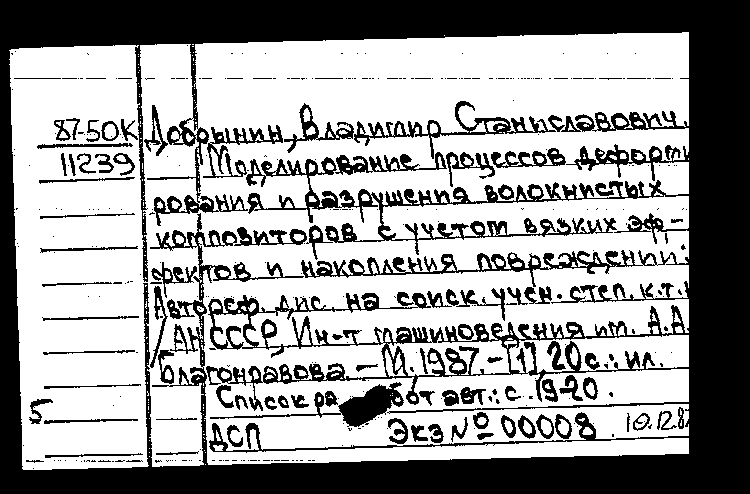 87-50К Добрынин, Владимир Станиславович.
11239 Моделирование процессов деформи
рования и разрушения волокнистых
композиторов с учетом вязких эф-
фектов и накопления повреждений:
Автореф. дис. на соиск. учен. степ. к.т.н
/АН СССР, Ин-т машиноведения им. А.А.
Благонравова. — М. 1987. – [1], 20 с.: ил.
Список работ авт.: с. 19-20.
5
ДСП Экз № 00008 10.12.87